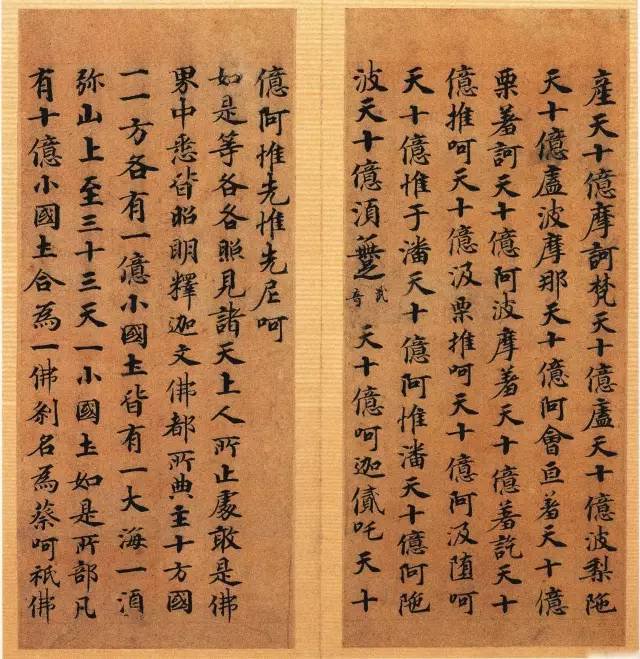 產天十億摩訶梵天十億盧天十億波梨陁
天十億盧波摩那天十億阿會亘著天十億
栗著訶天十億阿波摩著天十億著訖天十
億推呵天十億汲栗推呵天十億阿汲堕呵
天十億惟于潘天十億阿惟潘天十億阿陁
波天十億須 武奇 天十億呵迦吒天十
億阿惟先惟先尼呵
如是等各各照見諸天上人所止處敢是佛
界中悉皆昭明釋迦文佛都所典主十方國
一一方各有一億小國土皆有一大海一須
弥山上至三十三天一小國土如是所部凡
有十億小國土合為一佛刹名為蔡呵祇佛